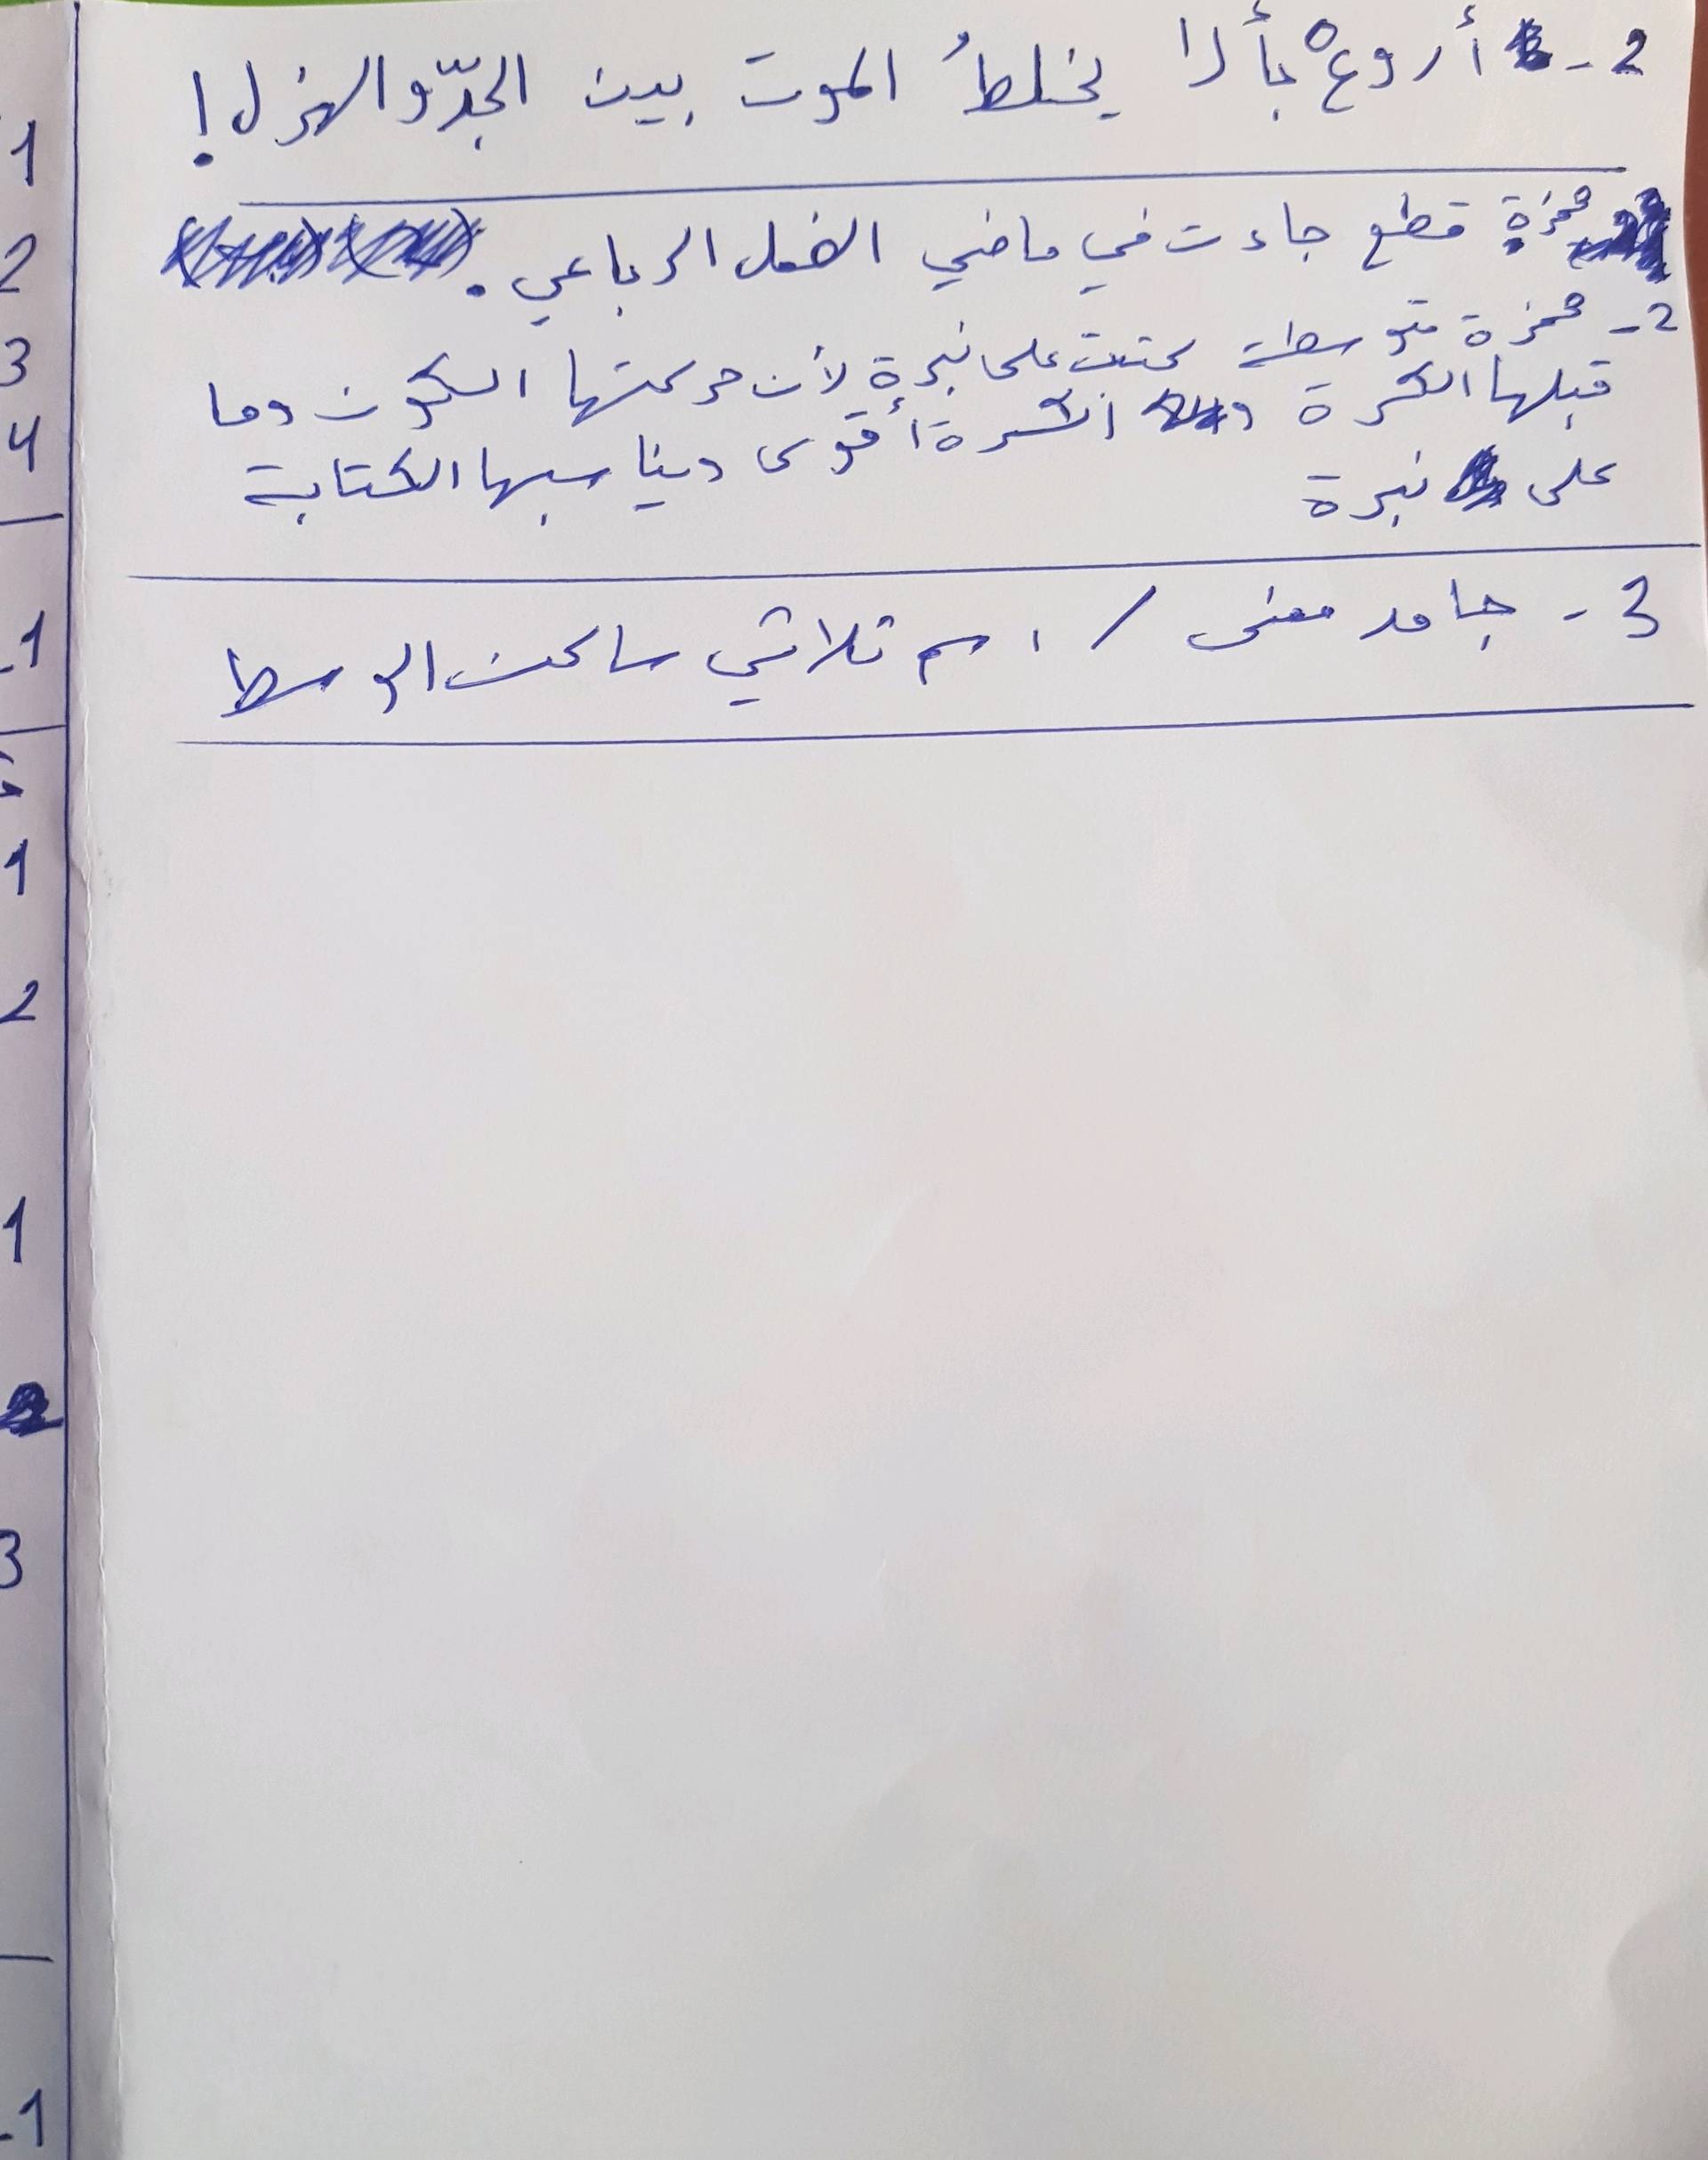 2- أروعْ بأن يخلطُ الموت بين الجدّ والهزل!
همزة قطع جاءت في ماضي الفعل الرباعي.
2- همزة متوسطة كتبت على نبرة لأن حركتها السكون وما
قبلها الكسرة و الكسرة أقوى ويناسبها الكتابة
على نبرة
3- جامد معنى / اسم ثلاثي ساكن الوسط
1
2
3
4
1-
1
2
1
3
1-